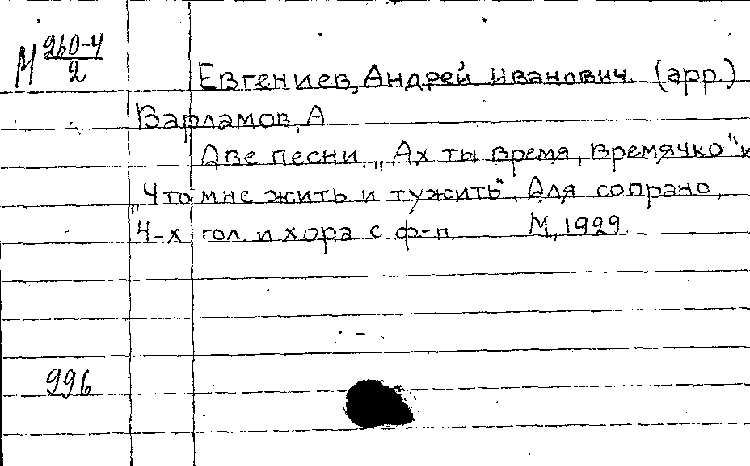 М 260-4/2
Евгениев, Андрей Иванович. (арр.)
Варламов, А
Две песни „Ах ты время, времячко" и
„Что мне жить и тужить". Для сопрано,
4-х гол. и хора с ф-п М, 1929.
996